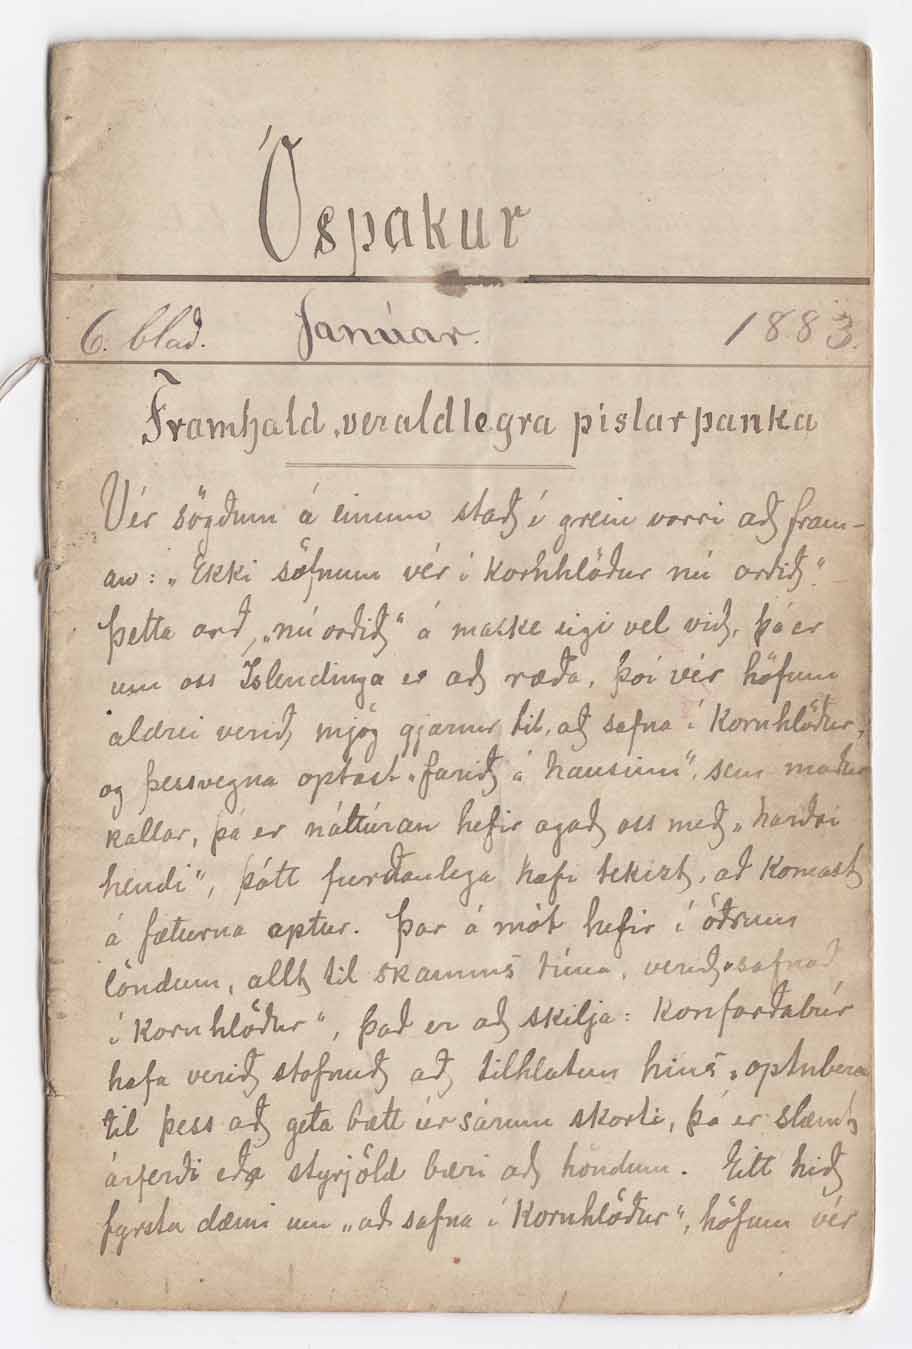 Óspakur
6. blað. Janúar. 1883.
Framhald veraldlegra píslarþanka
Vér sögðum á einum stað í grein vorri að fram-
an: „Ekki söfnum vér í kornhlöður nú orðið.“
Þetta orð, „nú orðið“ á máske eigi vel við, þá er
um oss Íslendinga er að ræða, því vér höfum
aldrei verið mjög gjarnir til, að safna í kornhlöður,
og þessvegna optast „farið á hausinn“, sem maður
kallar, þá er náttúran hefir agað oss með „harðri
hendi“, þótt furðanlega hafi tekizt, að komast
á fæturna aptur. Þar á mót hefir í öðrum
löndum, allt til skamms tíma, verið „safnað
í kornhlöður“, það er að skilja: kornforðabúr
hafa verið stofnuð að tilhlutun hins „opinbera
til þess að geta bætt úr sárum skorti, þá er slæmt
árferði eða styrjöld bæri að höndum. Eitt hið
fyrsta dæmi um „að safna í kornhlöður“, höfum vér